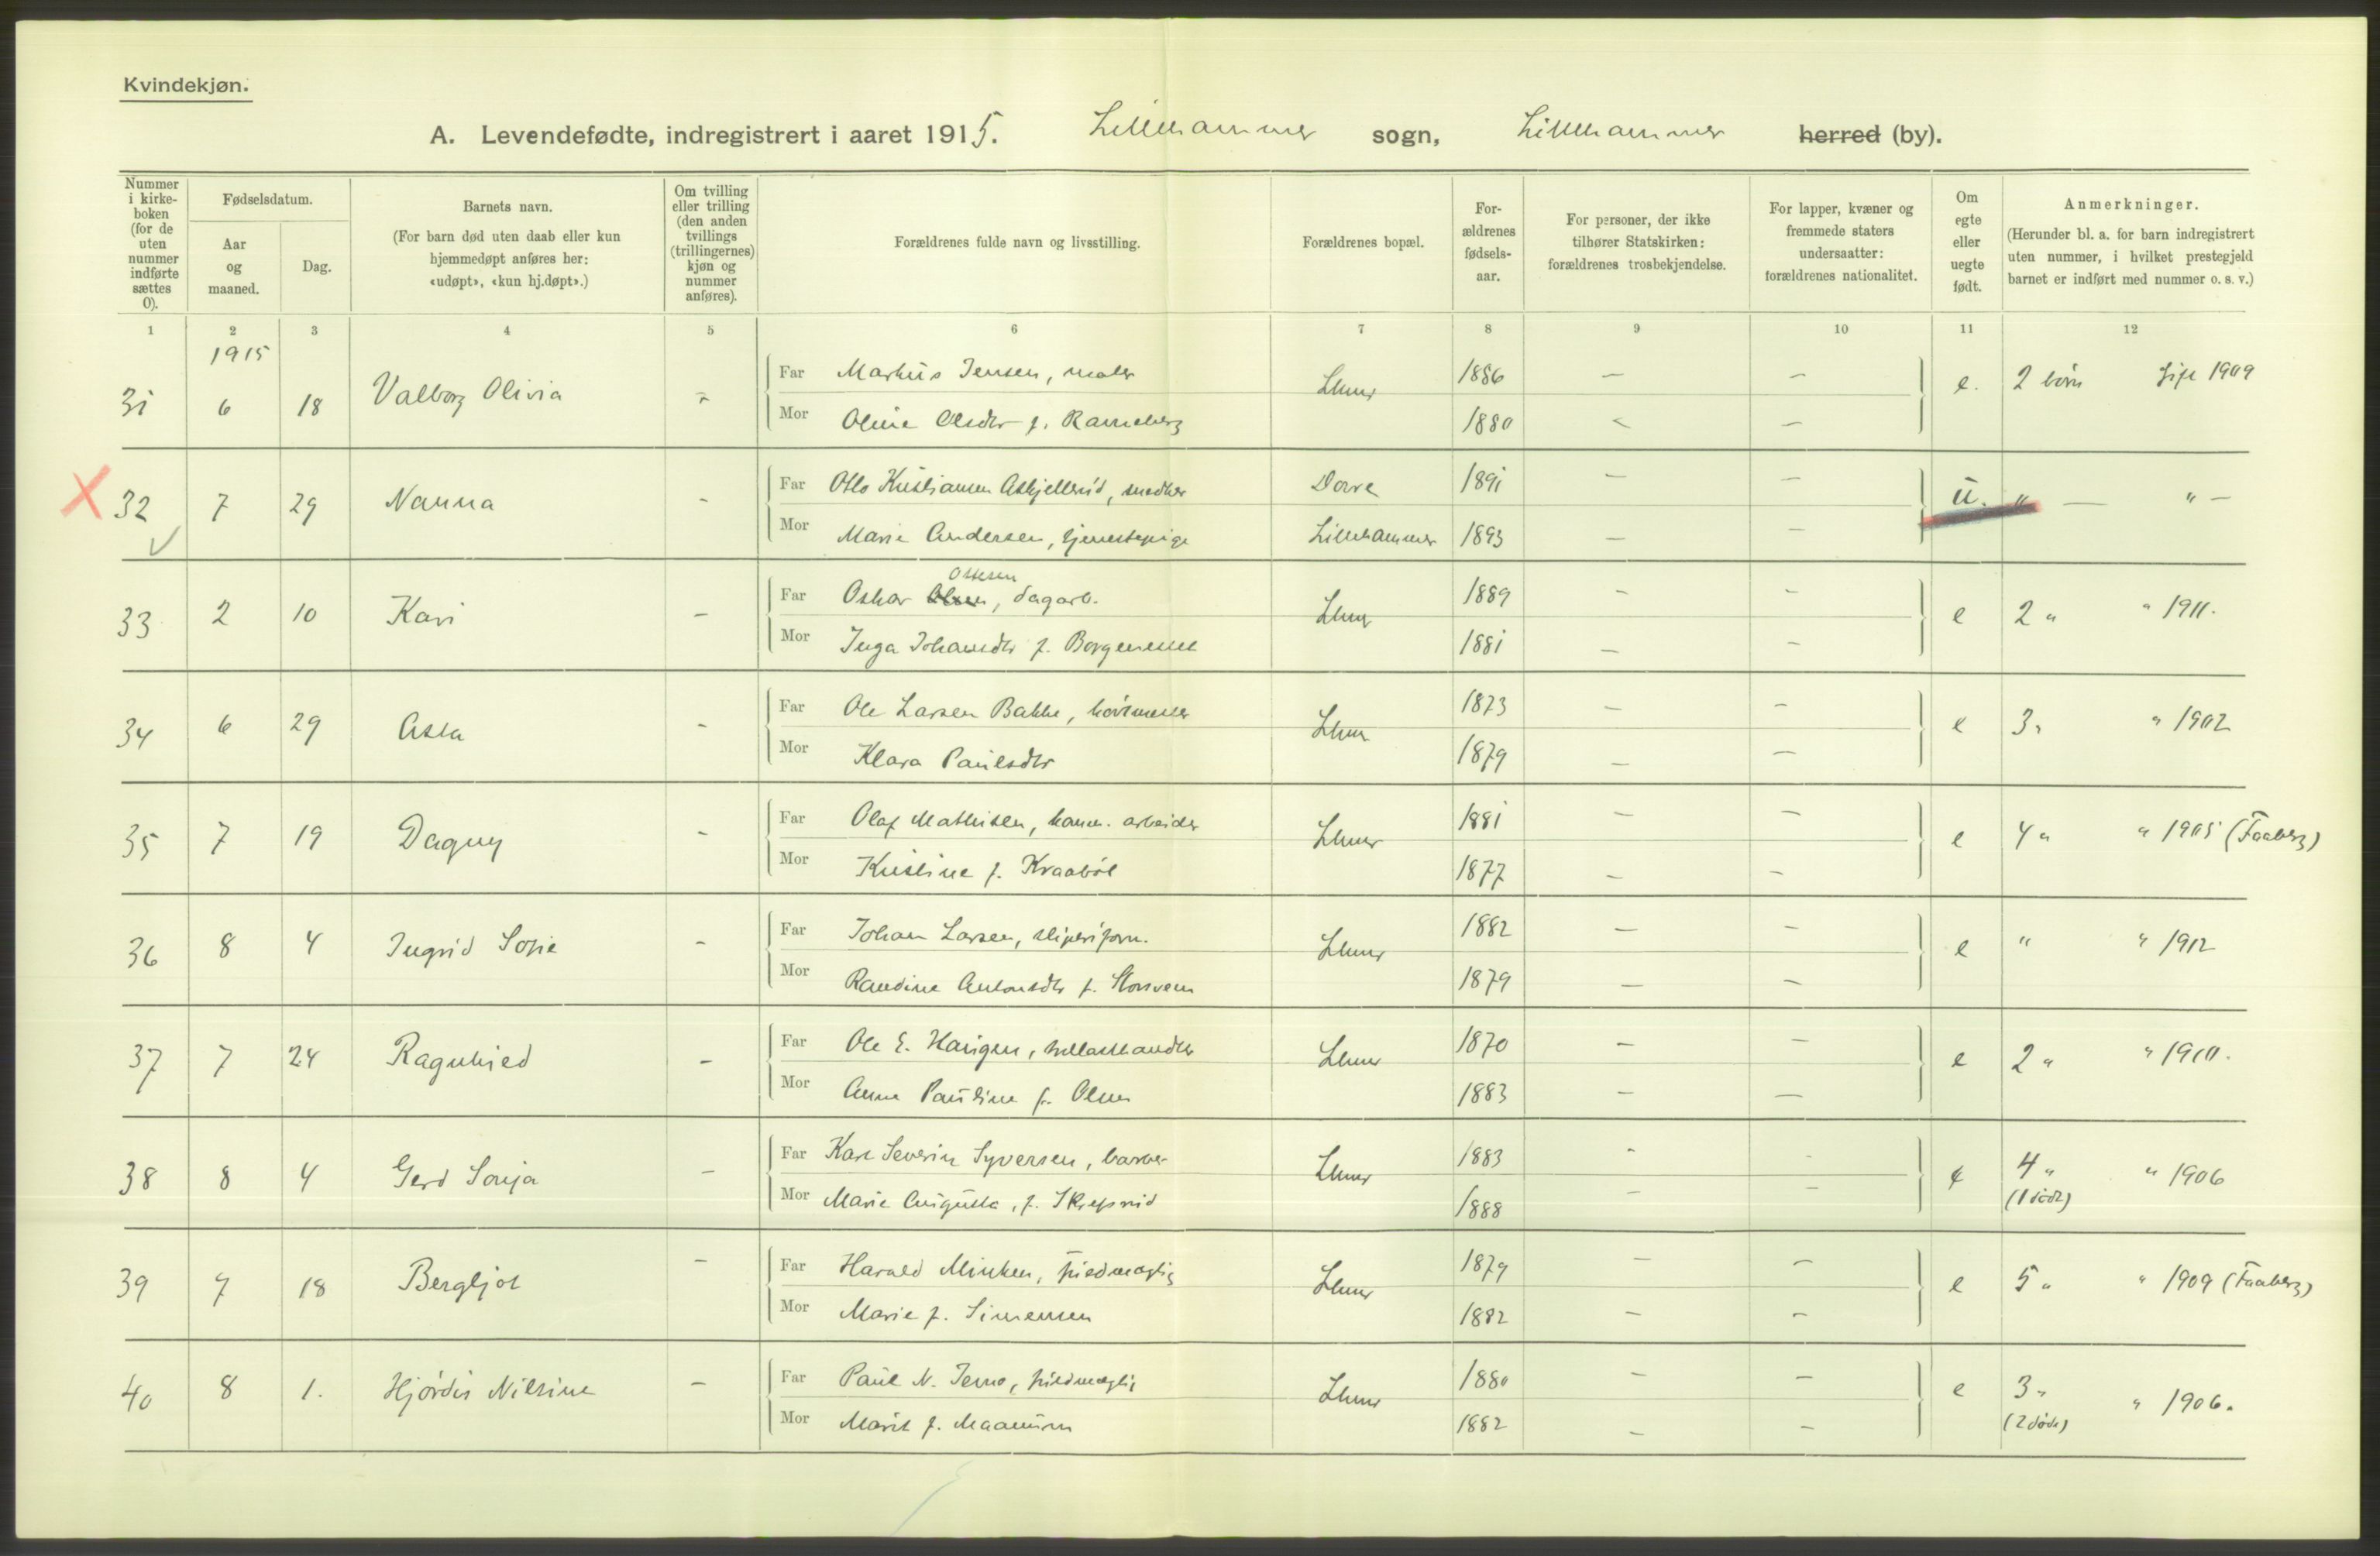 Kvindekjøn.
A. Levendefødte, indregistrert i aaret 1915. Lillehammer sogn, Lillehammer herred (by).
Nummer i kirke- boken (for de uten nummer indførte sættes 0).
Fødselsdatum.
Aar og maaned.
Dag.
Barnets navn.
(For barn død uten daab eller kun hjemmedøpt anføres her: «udøpt», «kun hj.døpt».)
Om tvilling eller trilling (den anden tvillings (trillingernes) kjøn og nummer anføres).
Forældrenes fulde navn og livsstilling.
Forældrenes bopæl.
For- ældrenes fødsels- aar.
For personer, der ikke tilhører Statskirken: forældrenes trosbekjendelse.
For lapper, kvæner og fremmede staters undersaatter: forældrenes nationalitet.
Om egte eller uegte født.
Anmerkninger.
(Herunder bl. a. for barn indregistrert uten nummer, i hvilket prestegjeld barnet er indført med nummer o. s. v.)
1 2 3 4 5 6 7 8 9 10 11 12
1915
31 6 18 Valborg Olivia - Far Markus Jensen, maler Lhmr 1886 — — e. 2 børn Gift 1909
Mor Oline Olsdtr f. Ranneberg 1880 — —
X 32 7 29 Nanna - Far Otto Kristiansen Askjellerud, snedker Dovre 1891 — — u. " — " —
Mor Marie Andersen, tjenestepige Lillehammer 1893 — —
33 2 10 Kari - Far Oskar Olsen Ottesen, dagarb. Lhmr 1889 - - e 2 " " 1911.
Mor Inga Johansdtr f. Borgeneset 1881 — —
34 6 29 Asta - Far Ole Larsen Bakke, Lhmr 1873 — - e 3 " " 1902
Mor Klara Paulsdtr 1879 — —
35 7 19 Dagny - Far Olaf Mathisen, kom. arbeider Lhmr 1881 — — e 4 " " 1905 (Faaberg)
Mor Kristine f. Kraabøl 1877 — -
36 8 4 Ingrid Sofie - Far Johan Larsen, sliperiform. Lhmr 1882 — — e " " 1912
Mor Randine Antonsdtr f. Storsveen 1879 — —
37 7 24 Ragnhild - Far Ole E. Haugen, Lhmr 1870 — — e 2 " " 1910.
Mor Anne Pauline f. Olsen 1883 — —
38 8 4 Gerd Sonja - Far Karl Severin Syversen, barber Lhmr 1883 - - e 4 " " 1906
Mor Marie Augusta, f. Skrepsrud 1888 - - (1 død)
39 7 18 Bergljot - Far Harald Minken, fuldmægtig Lhmr 1879 — — e 5 " " 1909 (Faaberg)
Mor Marie f. Simensen 1882 — —
40 8 1. Hjørdis Nilsine - Far Paul N. Jemo, fuldmægtig Lhmr 1880 — — e 3 " " 1906.
Mor Marit f. Maanum 1882 — — (2 døde)